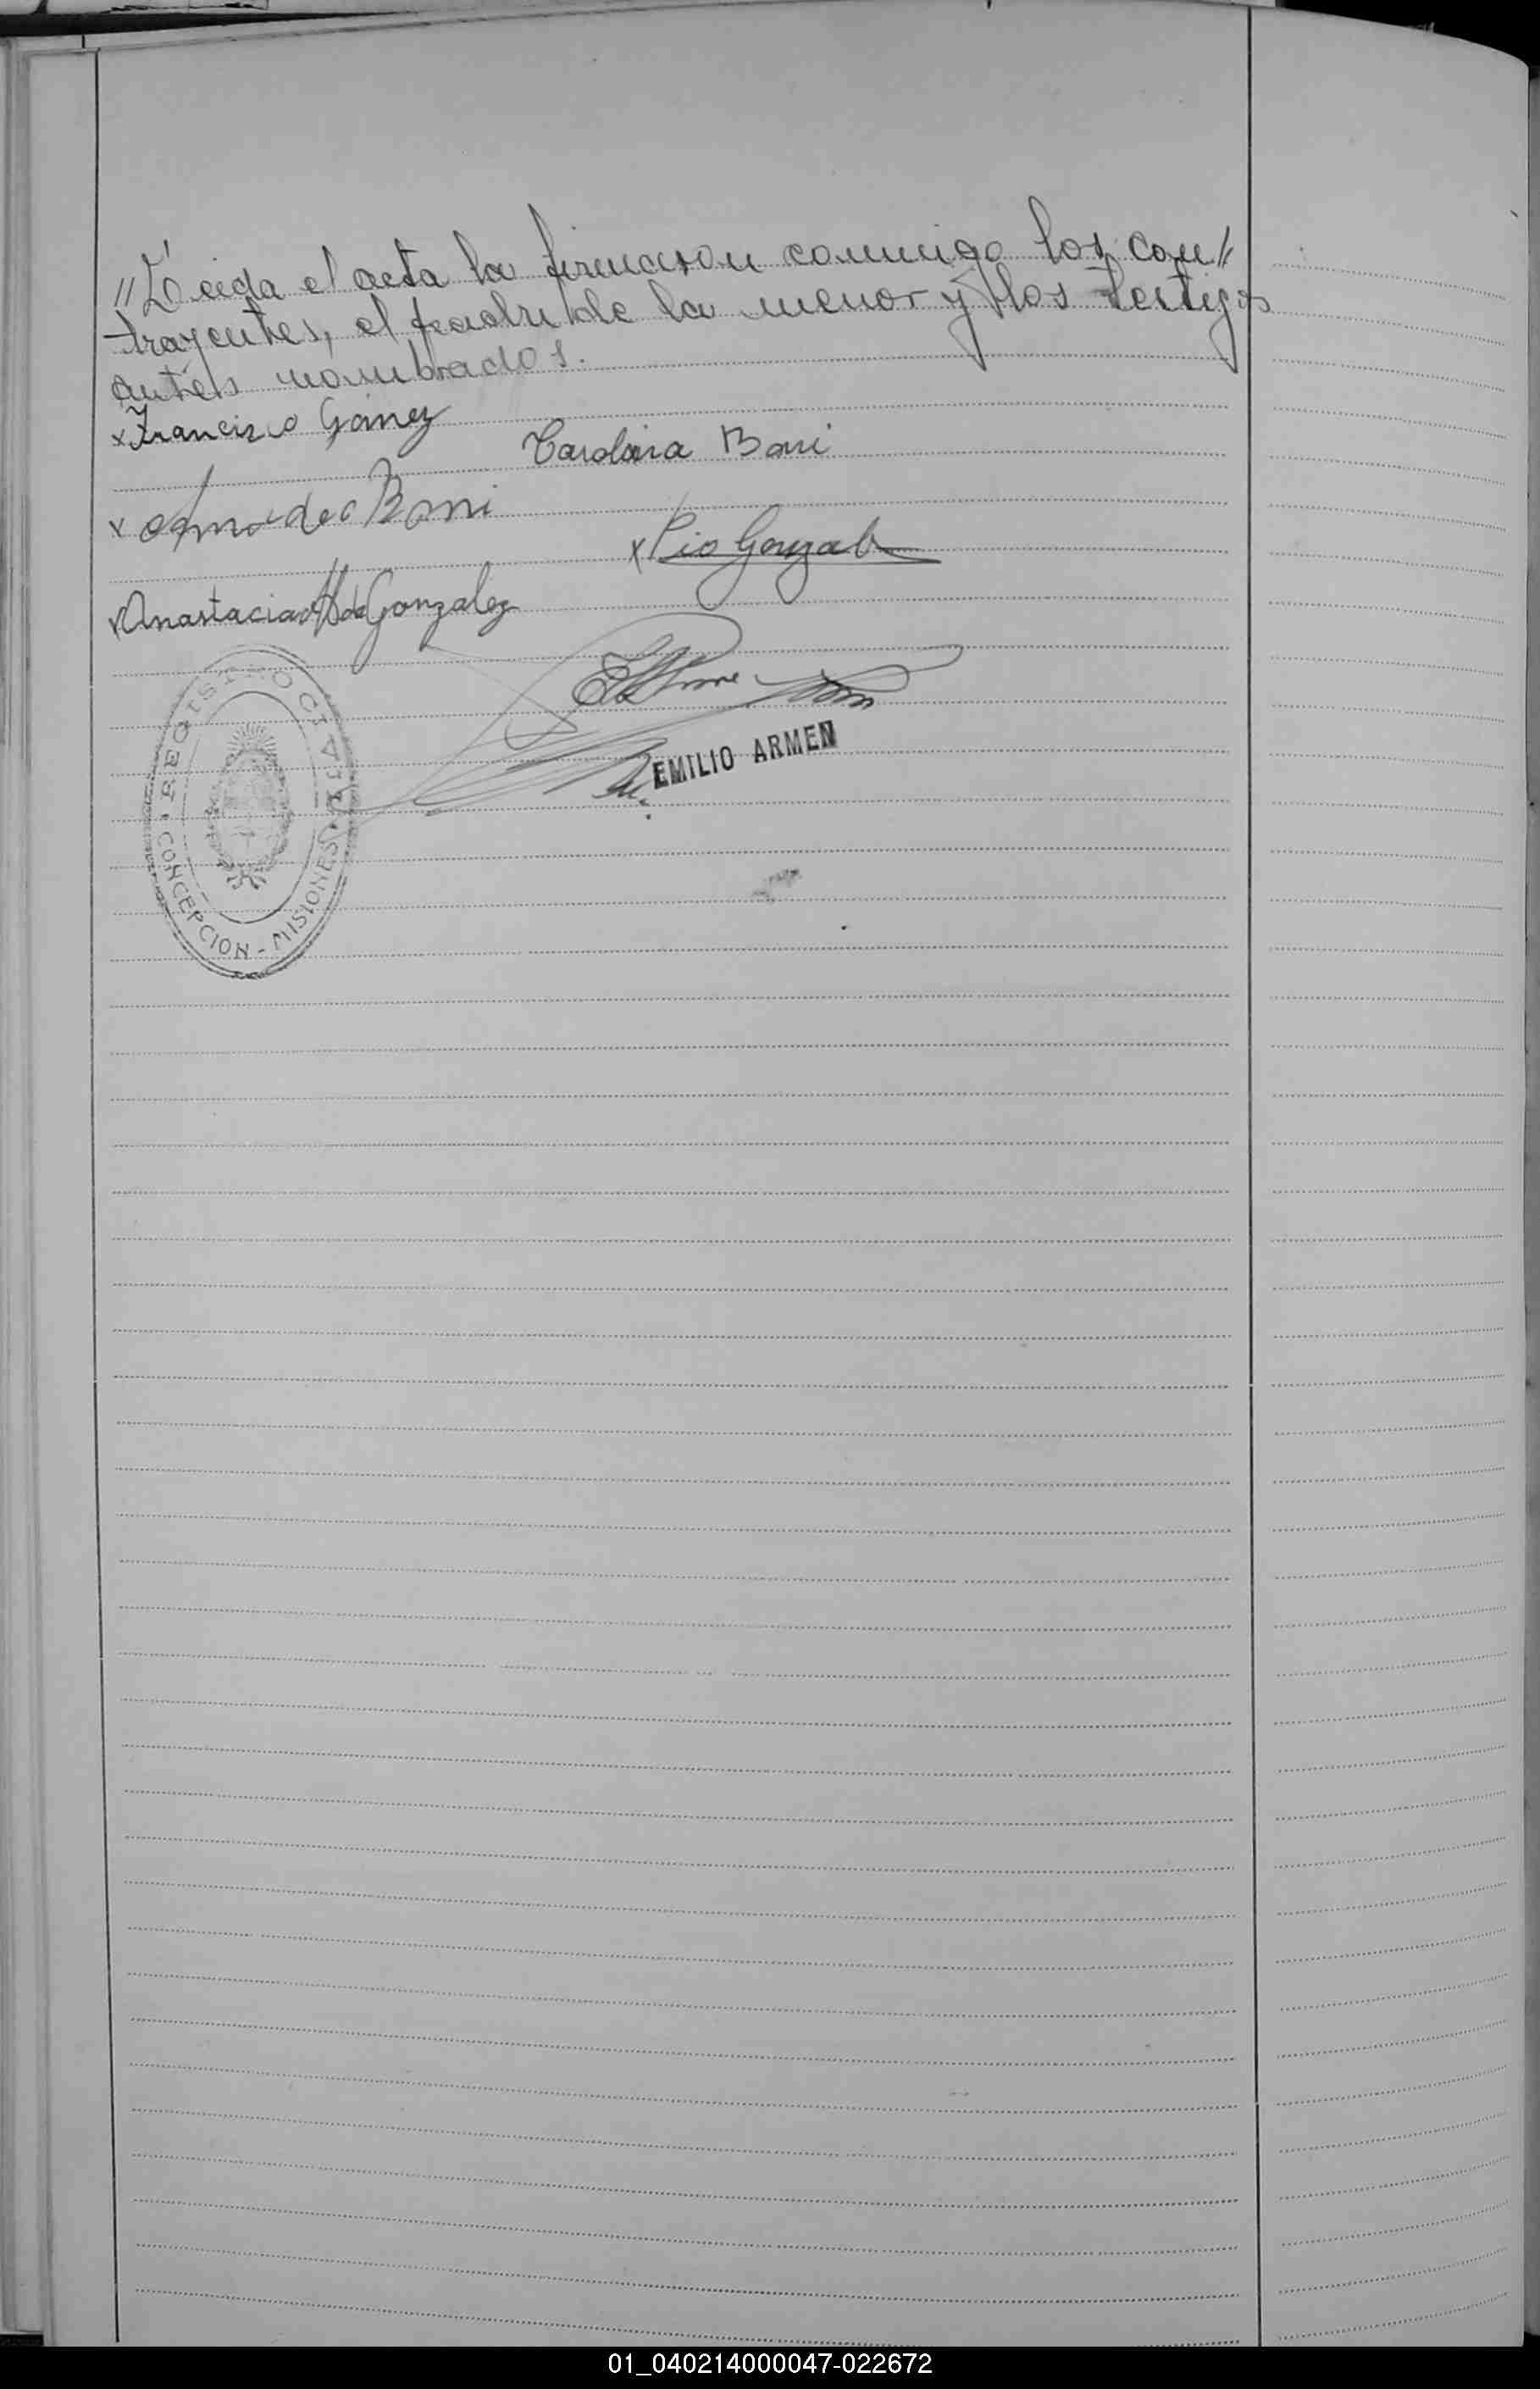 //Leida el acta la firmaron conmigo los con//
trayentes, el padre de la menor y los testigos
antes nombrados.
x Francisco Gómez
Carolina Boni
x Amadeo Boni
x Pio Gonzalez
x Anastacia de Gonzalez
EMILIO ARMEN
REGISTRO CIVIL
CONCEPCION - MISIONES
01_040214000047-022672